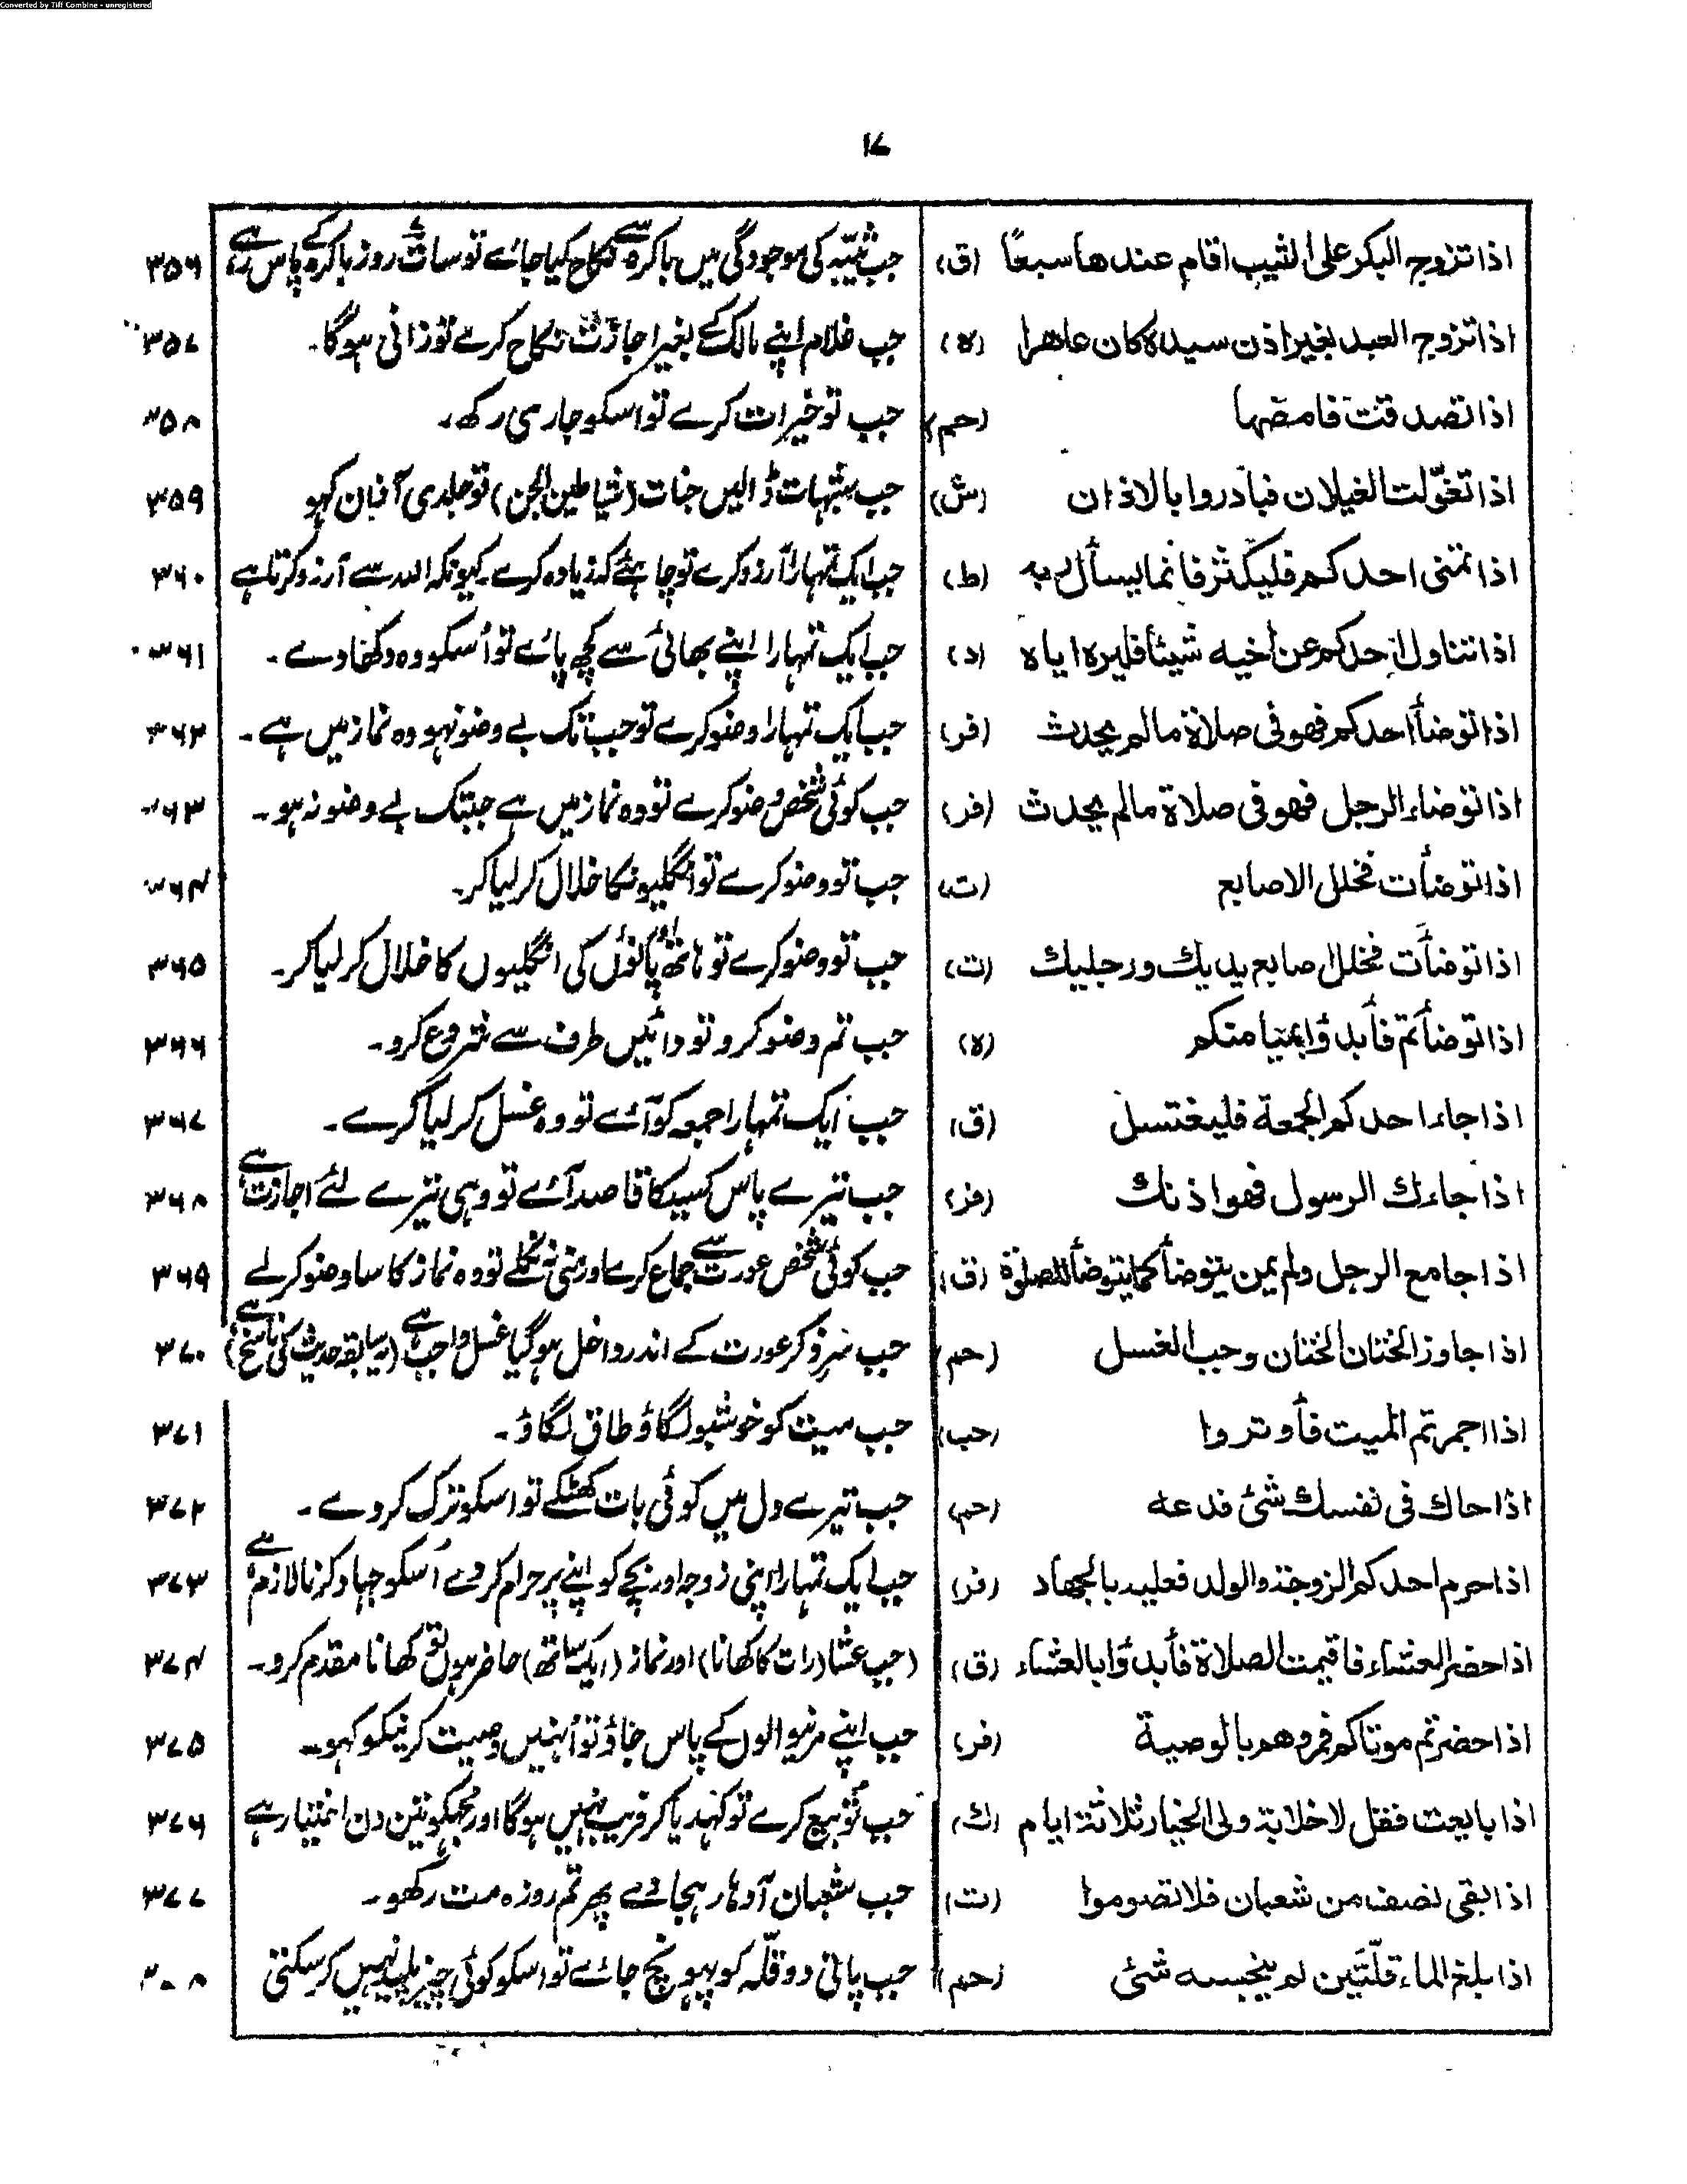 Converted by Tiff Combine - unregistered
۱۷
اذا تزوج البكر على الثيب اقام عندها سبعًا (ق) جب ثیّبہ کی موجودگی میں باکرہ سے نکاح کیا جائے تو سات روز باکرہ کے پاس رہے ۳۵۶
اذا تزوج العبد بغیر اذن سیدہ کان عاھرا (ہ) جب غلام اپنے مالک کے بغیر اجازت نکاح کرے تو زانی ہوگا۔ ۳۵۷
اذا تصدقت فامضہا (حم) جب تو خیرات کرے تو اسکو جاری رکھ۔ ۳۵۸
اذا تغوّلت الغیلان فبادروا بالاذان (ش) جب شبہات ڈالیں جنات (شیاطین الجن) تو جلدی آذان کہو ۳۵۹
اذا تمنی احدکم فلیکثر فانما یسأل ربہ (ط) جب ایک تمہارا آرزو کرے تو چاہئے کہ زیادہ کرے۔ کیونکہ اللہ سے آرزو کرتا ہے ۳۶۰
اذا تناول احدکم عن أخیہ شیئا فلیرہ ایاہ (د) جب ایک تمہارا اپنے بھائی سے کچھ پائے تو اُسکو وہ دکھا دے۔ ۳۶۱
اذا توضأ احدکم فھو فی صلاۃ مالم یحدث (فر) جب ایک تمہارا وضو کرے تو جب تک بے وضو نہو وہ نماز میں ہے۔ ۳۶۲
اذا توضاء الرجل فھو فی صلاۃ مالم یحدث (فر) جب کوئی شخص وضو کرے تو وہ نماز میں ہے جبتک بے وضو نہ ہو۔ ۳۶۳
اذا توضأت فخلل الاصابع (ت) جب تو وضو کرے تو انگلیونکا خلال کر لیا کر۔ ۳۶۴
اذا توضأت فخلل اصابع یدیك ورجلیك (ت) جب تو وضو کرے تو ہاتھ اور پاؤں کی انگلیوں کا خلال کر لیا کر۔ ۳۶۵
اذا توضأتم فأبدؤا بمیامنکم (ہ) جب تم وضو کرو تو دائیں طرف سے شروع کرو۔ ۳۶۶
اذا جاء احدکم الجمعة فلیغتسل (ق) جب ایک تمہارا جمعہ کو آئے تو وہ غسل کر لیا کرے۔ ۳۶۷
اذا جاءك الرسول فھو اذنك (فر) جب تیرے پاس کسیکا قاصد آئے تو وہی تیرے لئے اجازت ہے ۳۶۸
اذا جامع الرجل ولم یمن یتوضأ کما یتوضأ للصلوٰۃ (ق) جب کوئی شخص عورت سے جماع کرے اور منی نہ نکلے تو وہ نماز کا سا وضو کر لے ۳۶۹
اذا جاوز الختان الختان وجب الغسل (حم) جب نرو کر عورت کے اندر داخل ہوگیا غسل واجب ہے (یہ سابقہ حدیث کی ناسخ ہے) ۳۷۰
اذا اجمرتم المیت فأوتروا (حب) جب میت کو خوشبو لگاؤ طاق لگاؤ۔ ۳۷۱
اذا حاك فی نفسك شئ فدعه (حم) جب تیرے دل میں کوئی بات کھٹکے تو اسکو ترک کر دے۔ ۳۷۲
اذا حرم احدکم الزوجة والولد فعلیه بالجھاد (فر) جب ایک تمہارا اپنی زوجہ اور بچے کو اپنے پر حرام کر دے اُسکو جہاد کرنا لازم ہے ۳۷۳
اذا حضر العشاء فاقیمت الصلاۃ فأبدؤا بالعشاء (ق) (جب عشا (رات کا کھانا) اور نماز (ایک ساتھ) حاضر ہوں تو کھانا مقدم کرو۔ ۳۷۴
اذا حضرتم موتاکم فمروھم بالوصیة (فر) جب اپنے مرنیوالوں کے پاس جاؤ تو اُنہیں وصیت کرنیکو کہو۔ ۳۷۵
اذا بایعت فقل لا خلابة ولی الخیار ثلاثة ایام (ك) جب تُو بیع کرے تو کہدیا کر فریب نہیں ہوگا اور مجھکو تین دن اختیار ہے ۳۷۶
اذا بقی نصف من شعبان فلا تصوموا (ت) جب شعبان آدھا رہجاوے پھر تم روزہ مت رکھو۔ ۳۷۷
اذا بلغ الماء قلّتین لم ینجسه شئ (حم) جب پانی دو قلّہ کو پہونچ جائے تو اسکو کوئی چیز پلید نہیں کر سکتی